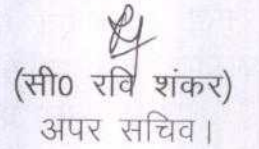 (सी0 रवि शंकर)
अपर सचिव।